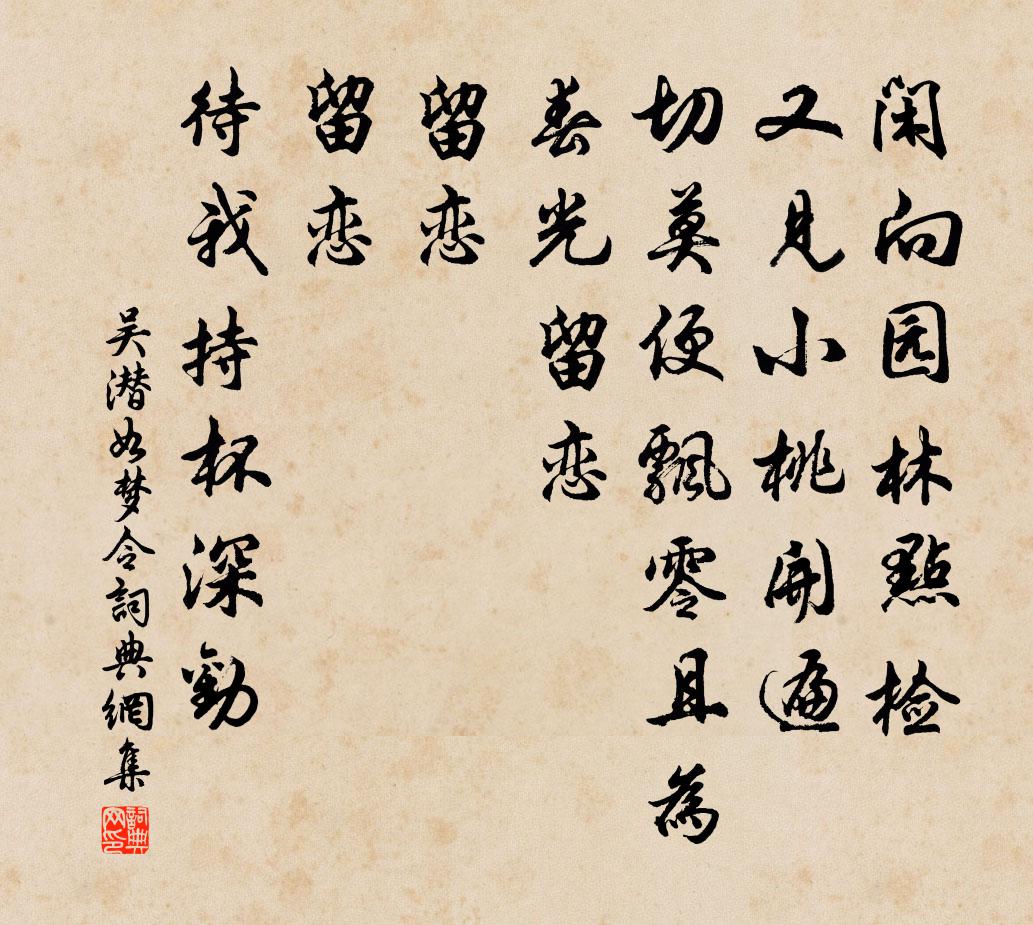 闲向园林點检
又见小桃開遍
切莫便飘零且為
春光留恋
留恋
留恋
待我持杯深勸
吴潜如梦令詞典網集
詞典网印